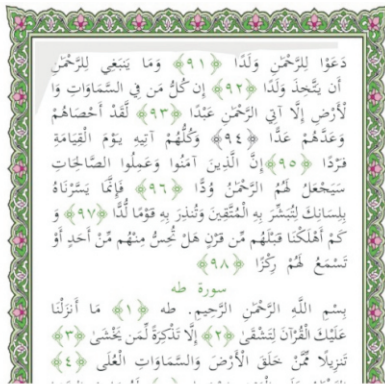 دَعَوْا لِلرَّحْمَٰنِ وَلَدًا ﴿٩١﴾ وَمَا يَنبَغِي لِلرَّحْمَٰنِ
أَن يَتَّخِذَ وَلَدًا ﴿٩٢﴾ إِن كُلُّ مَن فِي السَّمَاوَاتِ وَا
لْأَرْضِ إِلَّا آتِي الرَّحْمَٰنِ عَبْدًا ﴿٩٣﴾ لَّقَدْ أَحْصَاهُمْ
وَعَدَّهُمْ عَدًّا ﴿٩٤﴾ وَكُلُّهُمْ آتِيهِ يَوْمَ الْقِيَامَةِ
فَرْدًا ﴿٩٥﴾ إِنَّ الَّذِينَ آمَنُوا وَعَمِلُوا الصَّالِحَاتِ
سَيَجْعَلُ لَهُمُ الرَّحْمَٰنُ وُدًّا ﴿٩٦﴾ فَإِنَّمَا يَسَّرْنَاهُ
بِلِسَانِكَ لِتُبَشِّرَ بِهِ الْمُتَّقِينَ وَتُنذِرَ بِهِ قَوْمًا لُّدًّا ﴿٩٧﴾ وَ
كَمْ أَهْلَكْنَا قَبْلَهُم مِّن قَرْنٍ هَلْ تُحِسُّ مِنْهُم مِّنْ أَحَدٍ أَوْ
تَسْمَعُ لَهُمْ رِكْزًا ﴿٩٨﴾
سورة طه
بِسْمِ اللَّهِ الرَّحْمَٰنِ الرَّحِيمِ. طه ﴿١﴾ مَا أَنزَلْنَا
عَلَيْكَ الْقُرْآنَ لِتَشْقَىٰ ﴿٢﴾ إِلَّا تَذْكِرَةً لِّمَن يَخْشَىٰ ﴿٣﴾
تَنزِيلًا مِّمَّنْ خَلَقَ الْأَرْضَ وَالسَّمَاوَاتِ الْعُلَى ﴿٤﴾